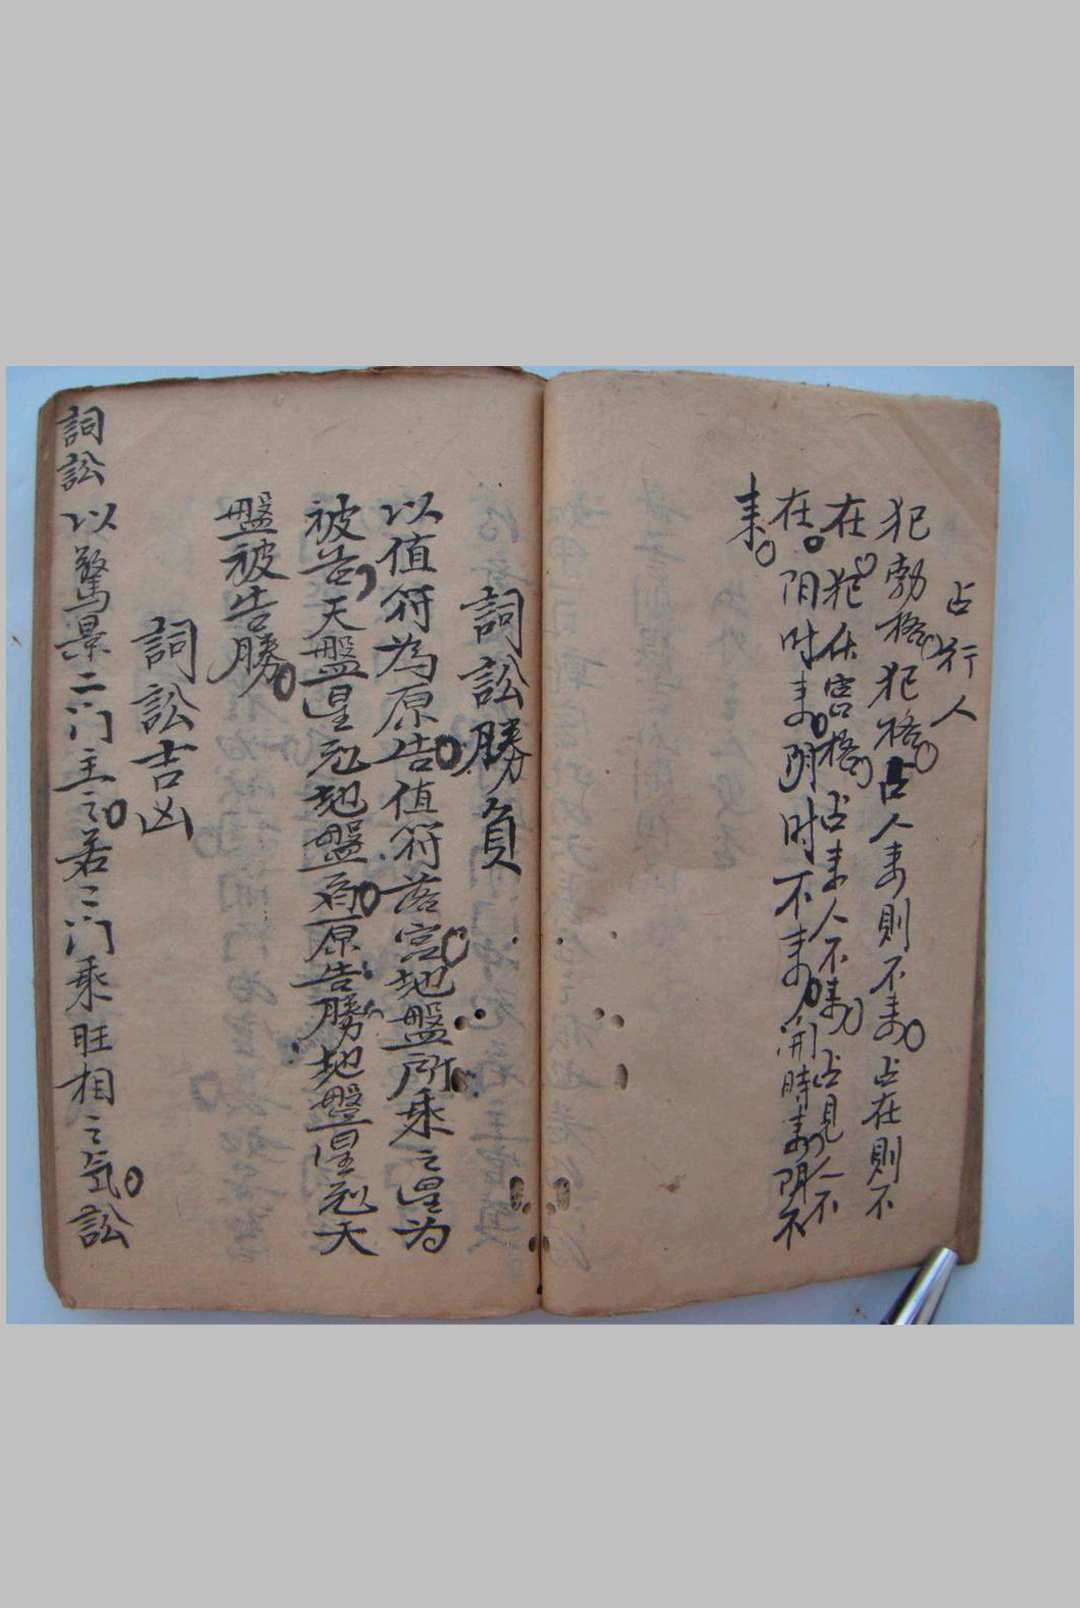 占行人
犯勃格犯格占人来則不来占在則不
在犯伏宮格占来人不来占見人不
在阴时来阴时不来開時来阴不
来
詞訟勝負
以值符為原告值符落宮地盤所乘之星为
被告天盤星尅地盤者原告勝地盤星尅天
盤被告勝
詞訟吉凶
詞訟以驚景二门主之若二门乘旺相之氣訟